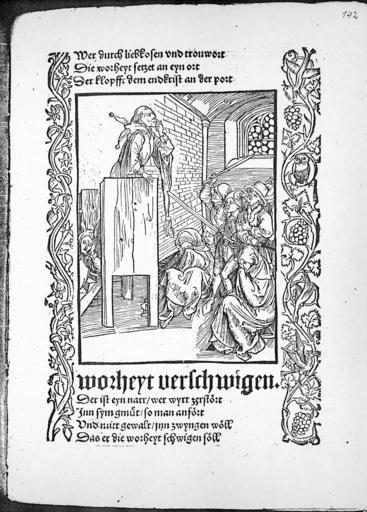 142
Wer durch liebkosen vnd trowort
Die worheyt setzet an eyn ort
Der klopfft dem endkrist an der port
worheyt verschwigen.
Der ist eyn narr/wer wyrt zerstört
Inn sym gmüt/so man anfört
Vnd mitt gewalt/jnn zwyngen wöll
Das er die worheyt schwigen söll